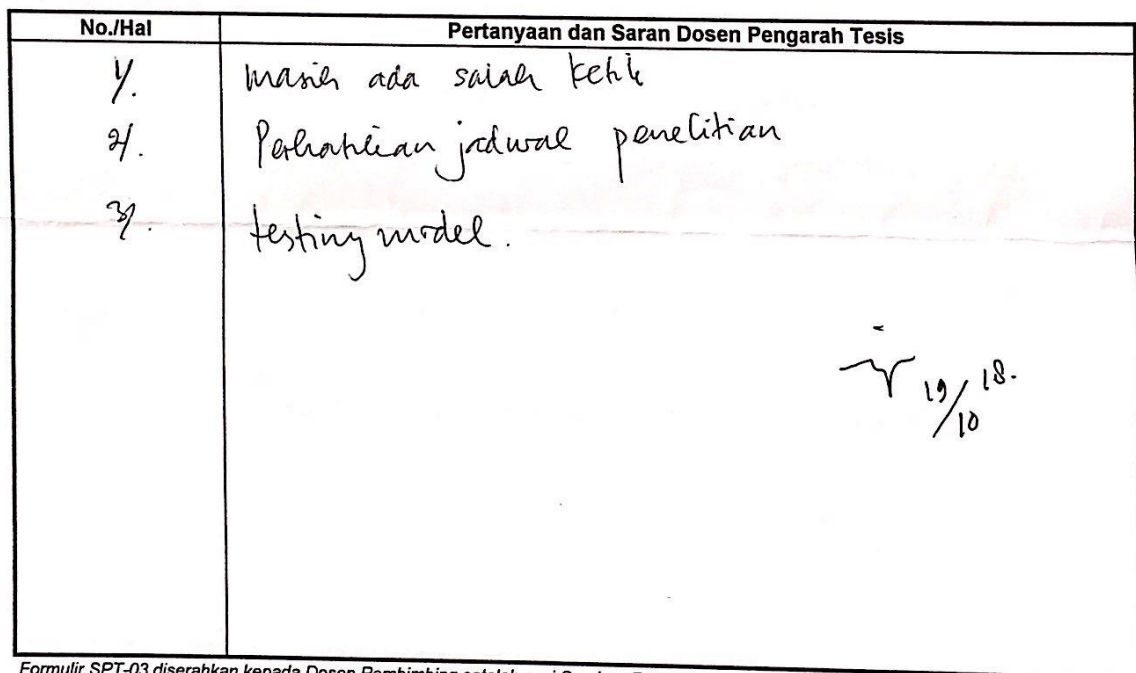 No./Hal Pertanyaan dan Saran Dosen Pengarah Tesis
1/. masih ada salah ketik
2/. Perhatikan jadwal penelitian
3/. testing model.
19/10 18.
Formulir SPT-03 diserahkan kepada Dosen Pembimbing setelah